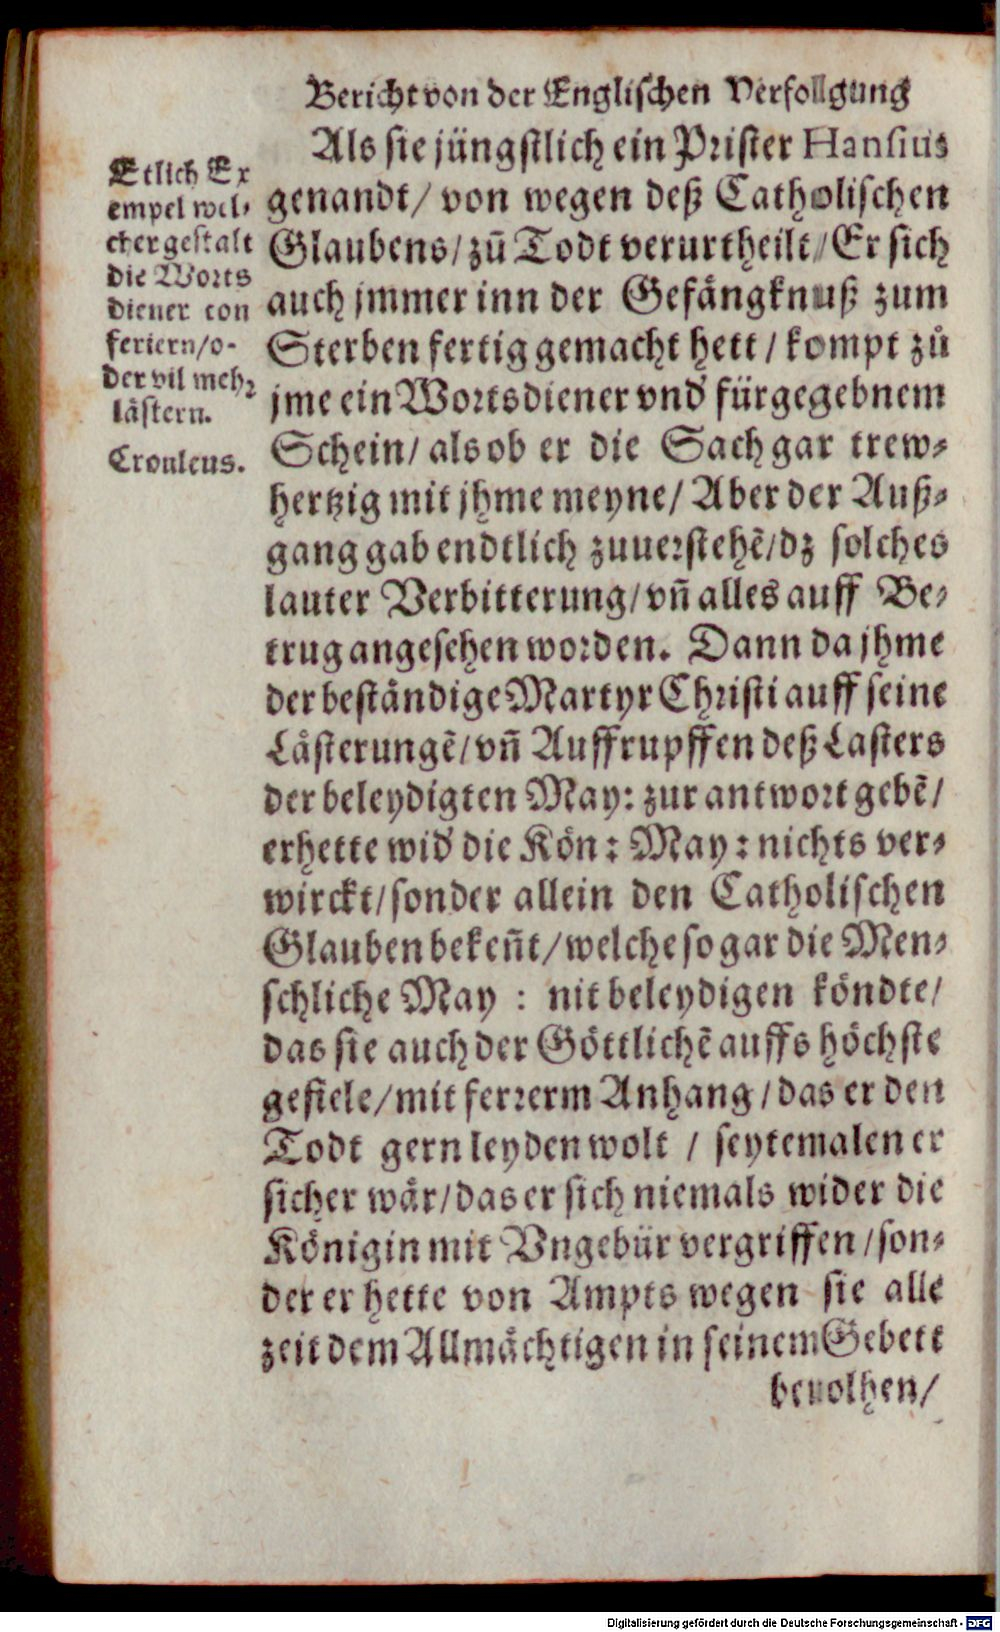 Bericht von der Englischen Verfollgung
Etlich Ex
empel wel-
cher gestalt
die Worts
diener con
feriern/o-
der vil mehꝛ
lästern.
Crouleus.
Als sie jüngstlich ein Prister Hansius
genandt/ von wegen deß Catholischen
Glaubens/zů Todt verurtheilt/Er sich
auch jmmer inn der Gefängknuß zum
Sterben fertig gemacht hett/kompt zů
jme ein Wortsdiener vnd fürgegebnem
Schein/als ob er die Sach gar trew-
hertzig mit jhme meyne/Aber der Auß-
gang gab endtlich zuuerstehẽ/dz solches
lauter Verbitterung/vñ alles auff Be-
trug angesehen worden. Dann da jhme
der beständige Martyr Christi auff seine
Lästerungẽ/vñ Auffrupffen deß Lasters
der beleydigten May: zur antwort gebẽ/
er hette wid̕ die Kön: May: nichts ver-
wirckt/sonder allein den Catholischen
Glauben bekeñt/welche so gar die Men-
schliche May: nit beleydigen köndte/
das sie auch der Göttlichẽ auffs höchste
gefiele/mit ferrerm Anhang/das er den
Todt gern leyden wolt / seytemalen er
sicher wär/das er sich niemals wider die
Königin mit Vngebür vergriffen/son-
der er hette von Ampts wegen sie alle
zeit dem Allmächtigen in seinem Gebett
beuolhen/
Digitalisierung gefördert durch die Deutsche Forschungsgemeinschaft - DFG